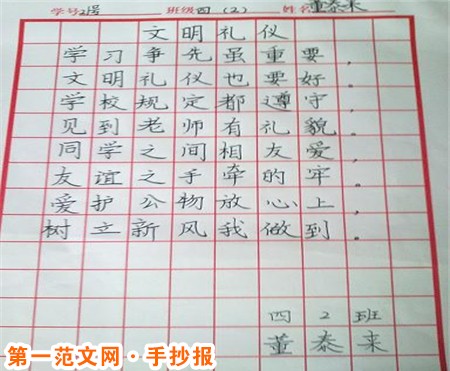 学号2号 班级四（2） 姓名董泰来
文明礼仪
学习争先虽重要，
文明礼仪也要好。
学校规定都遵守，
见到老师有礼貌。
同学之间相友爱，
友谊之手牵的牢。
爱护公物放心上，
树立新风我做到。
四2班
董泰来
第一范文网·手抄报